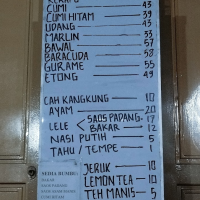 KERAPU
CUMI 43
CUMI HITAM 39
UDANG 45
MARLIN 33
BAWAL 57
BARACUDA 58
GURAME 55
ETONG 49
CAH KANGKUNG 10
AYAM 20
LELE < SAOS PADANG 17
BAKAR 12
NASI PUTIH 5
TAHU / TEMPE 1
SEDIA BUMBU
JERUK 10
LEMON TEA 10
TEH MANIS 5